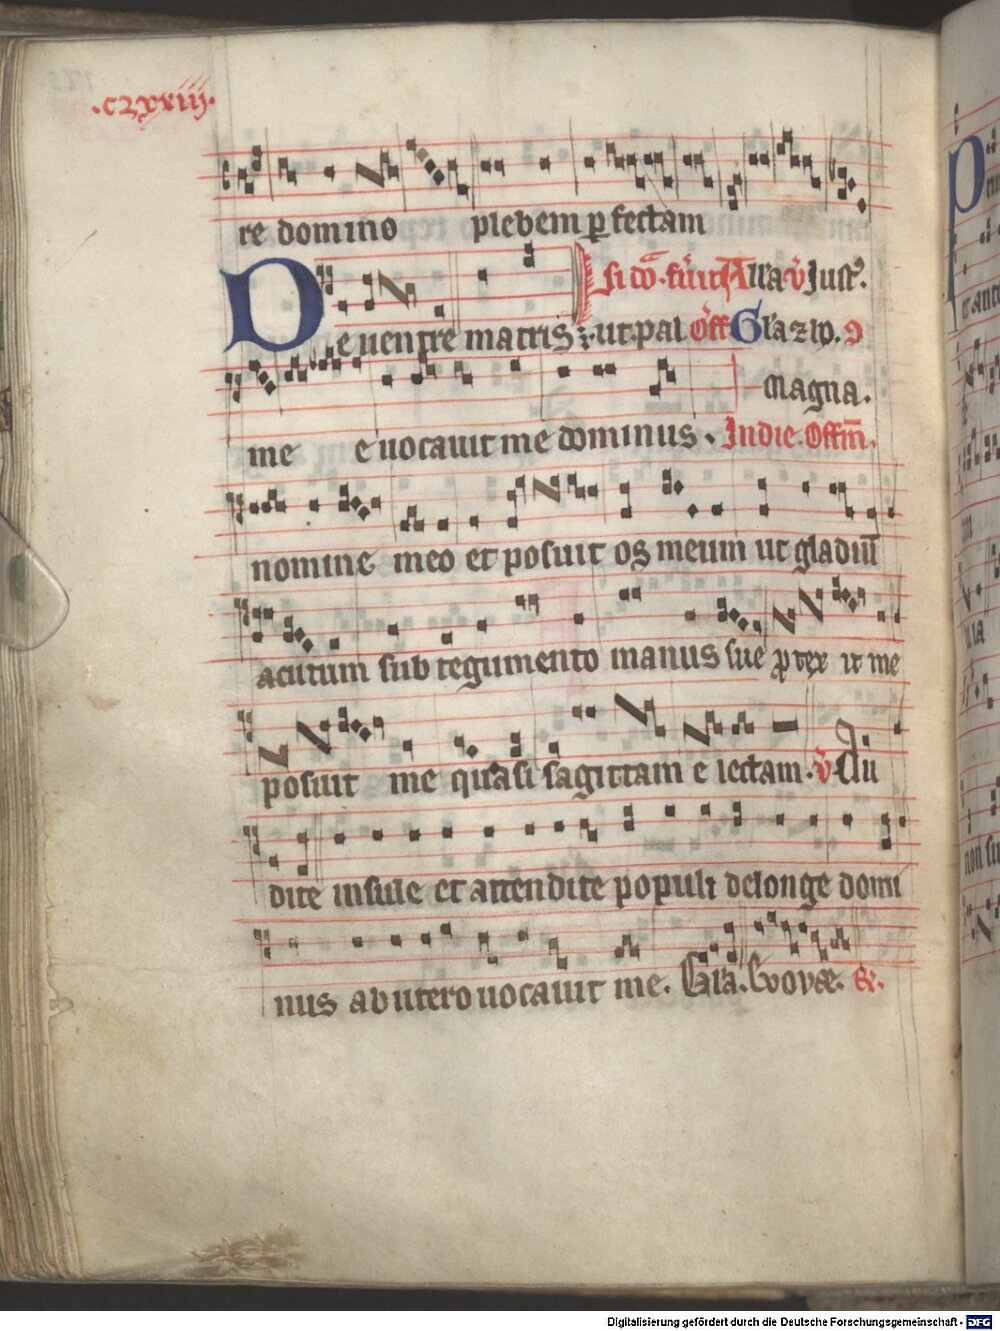 .clxxiii.
re domino plebem perfectam
Si dō. fūit All'a v̄ Just'.
De uentre matris ut pal off Gl'a z ho. 9
magna.
me e uocauit me dominus. In die. Offm̄.
nomine meo et posuit os meum ut gladiū
acutum sub tegumento manus sue ꝓtex it me
posuit me quasi sagittam e lectam. v̄ Au
dite insule et attendite populi delonge domi
nus ab utero uocauit me. Gl'a. Evovae.
Digitalisierung gefördert durch die Deutsche Forschungsgemeinschaft - DFG